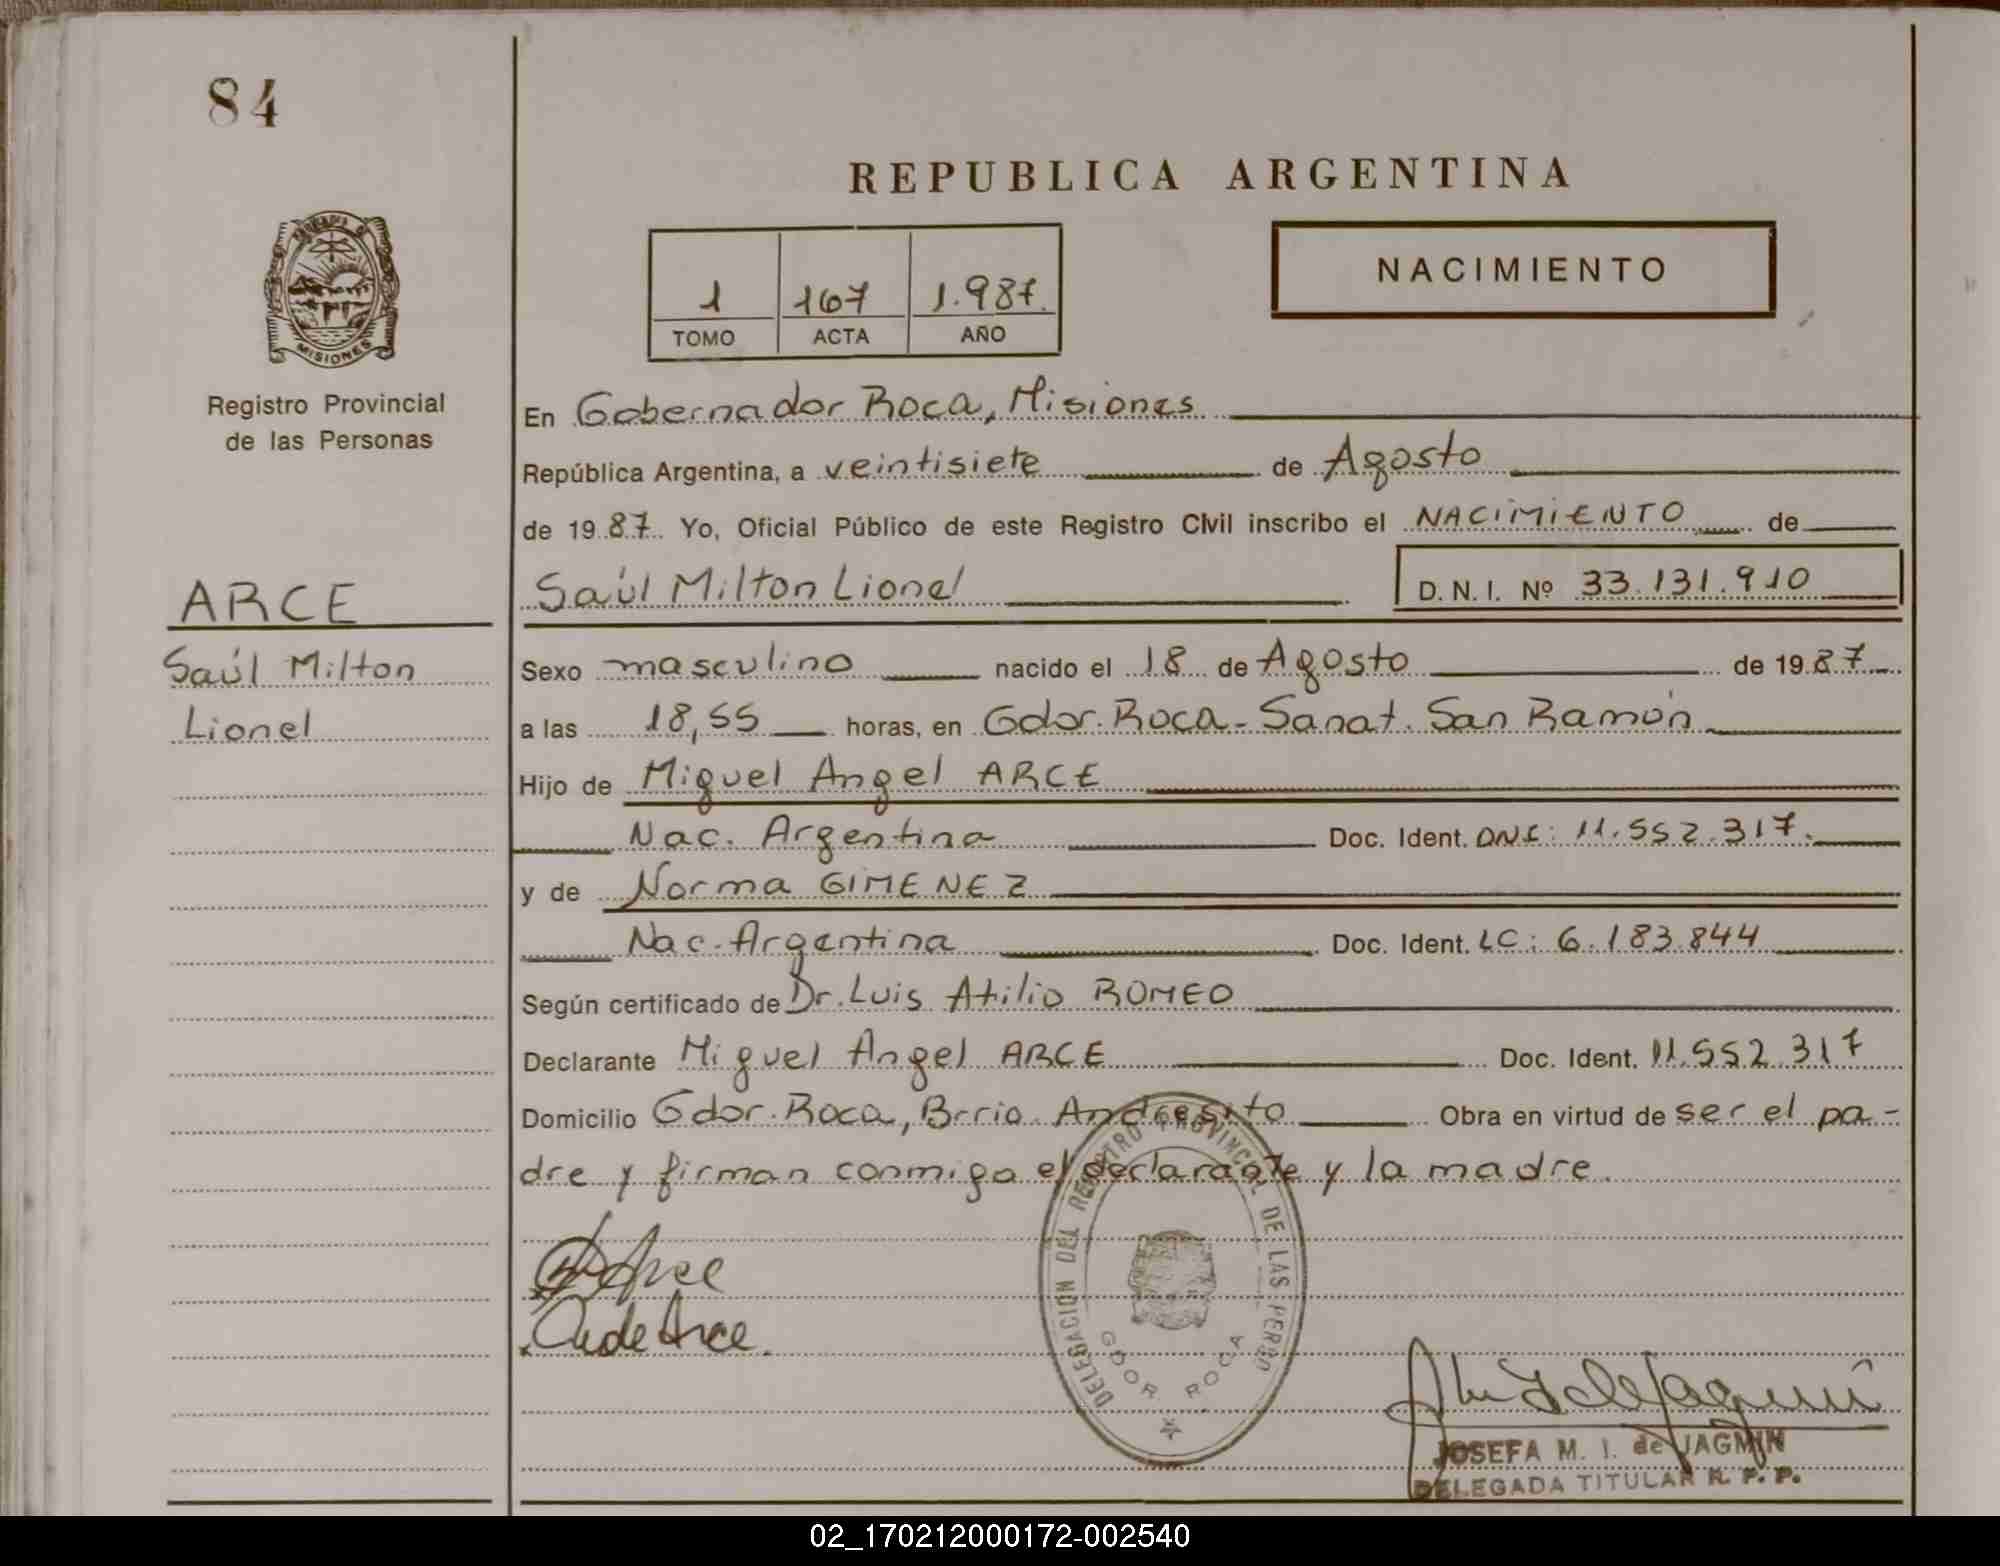 84
REPUBLICA ARGENTINA
NACIMIENTO
1 167 1.987.
TOMO ACTA AÑO
MISIONES
Registro Provincial
de las Personas
En Gobernador Roca, Misiones
República Argentina, a veintisiete de Agosto
de 1987 Yo, Oficial Público de este Registro Civil inscribo el NACIMIENTO de
Saúl Milton Lionel D.N.I. Nº 33.131.910
ARCE
Saúl Milton
Lionel
Sexo masculino nacido el 18 de Agosto de 1987
a las 18,55 horas, en Gdor. Roca - Sanat. San Ramón
Hijo de Miguel Angel ARCE
Nac. Argentina Doc. Ident. DNI: 11.552.317.
y de Norma GIMENEZ
Nac. Argentina Doc. Ident. LC: 6.183.844
Según certificado de Dr. Luis Atilio ROMEO
Declarante Miguel Angel ARCE Doc. Ident. 11.552.317
Domicilio Gdor. Roca, Brrio. Andresito Obra en virtud de ser el pa-
dre y firman conmigo el declarante y la madre.
DELEGACION DEL REGISTRO PROVINCIAL DE LAS PERSO
GDOR ROCA
Arce
de Arce.
JOSEFA M. I. de JAGMIN
DELEGADA TITULAR R. P. P.
02_170212000172-002540